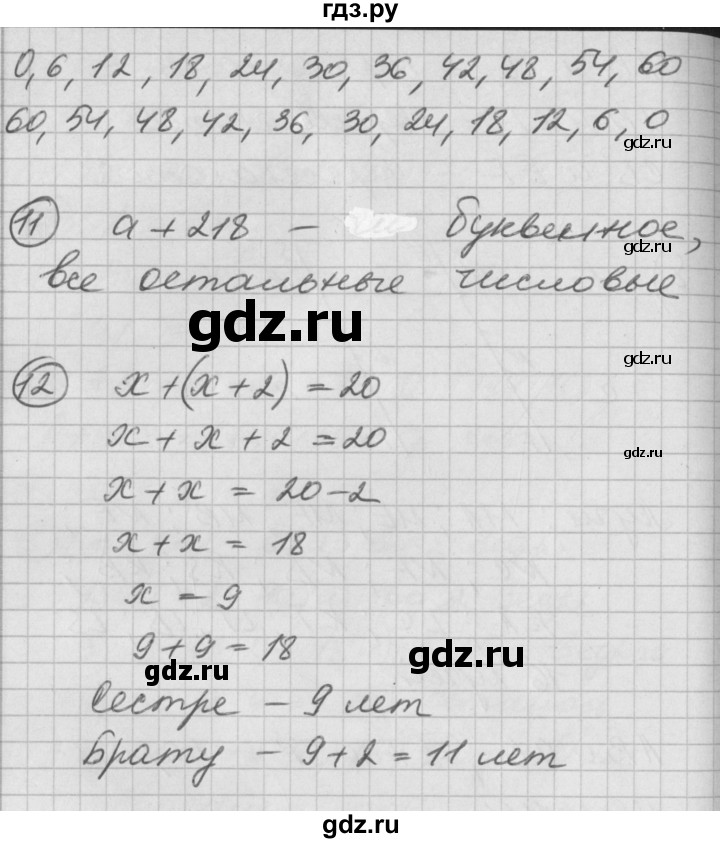 гдз.ру
0, 6, 12, 18, 24, 30, 36, 42, 48, 54, 60
60, 54, 48, 42, 36, 30, 24, 18, 12, 6, 0
gdz.ru
11 а + 218 – буквенное,
gdz.ru
все остальные числовые
gdz.ru
gdz.ru
12 x + (x + 2) = 20
x + x + 2 = 20
gdz.ru
x + x = 20 – 2
x + x = 18
x = 9
gdz.ru
9 + 9 = 18
gdz.ru
gdz.ru
Сестре – 9 лет
Брату – 9 + 2 = 11 лет
gdz.ru